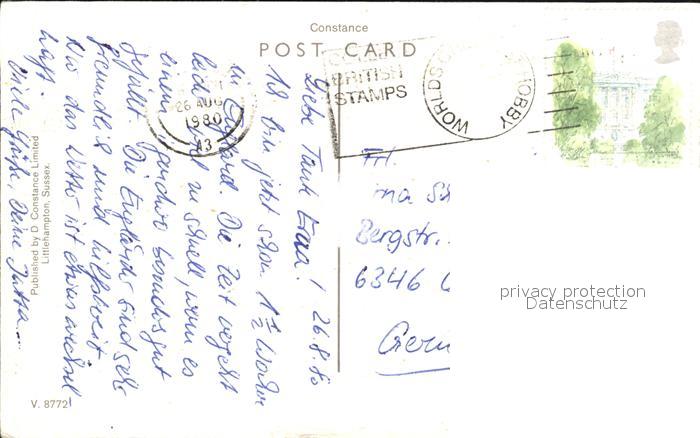 Constance
POST CARD
BRITISH
STAMPS
WORLDS HOBBY
26 AUG
1980
13
Liebe Tante Erna! 26.8.80
Ich bin jetzt schon 1 1/2 Wochen
in England. Die Zeit vergeht
leider viel zu schnell, wenn es
einem irgendwo besonders gut
gefällt. Die Engländer sind sehr
freundlich und hilfsbereit.
Nur das Wetter ist etwas wechsel
haft.
Viele Grüße, Deine Jutta
Frl.
Bergstr.
6346
Published by D. Constance Limited
Littlehampton, Sussex.
V. 8772
privacy protection
Datenschutz